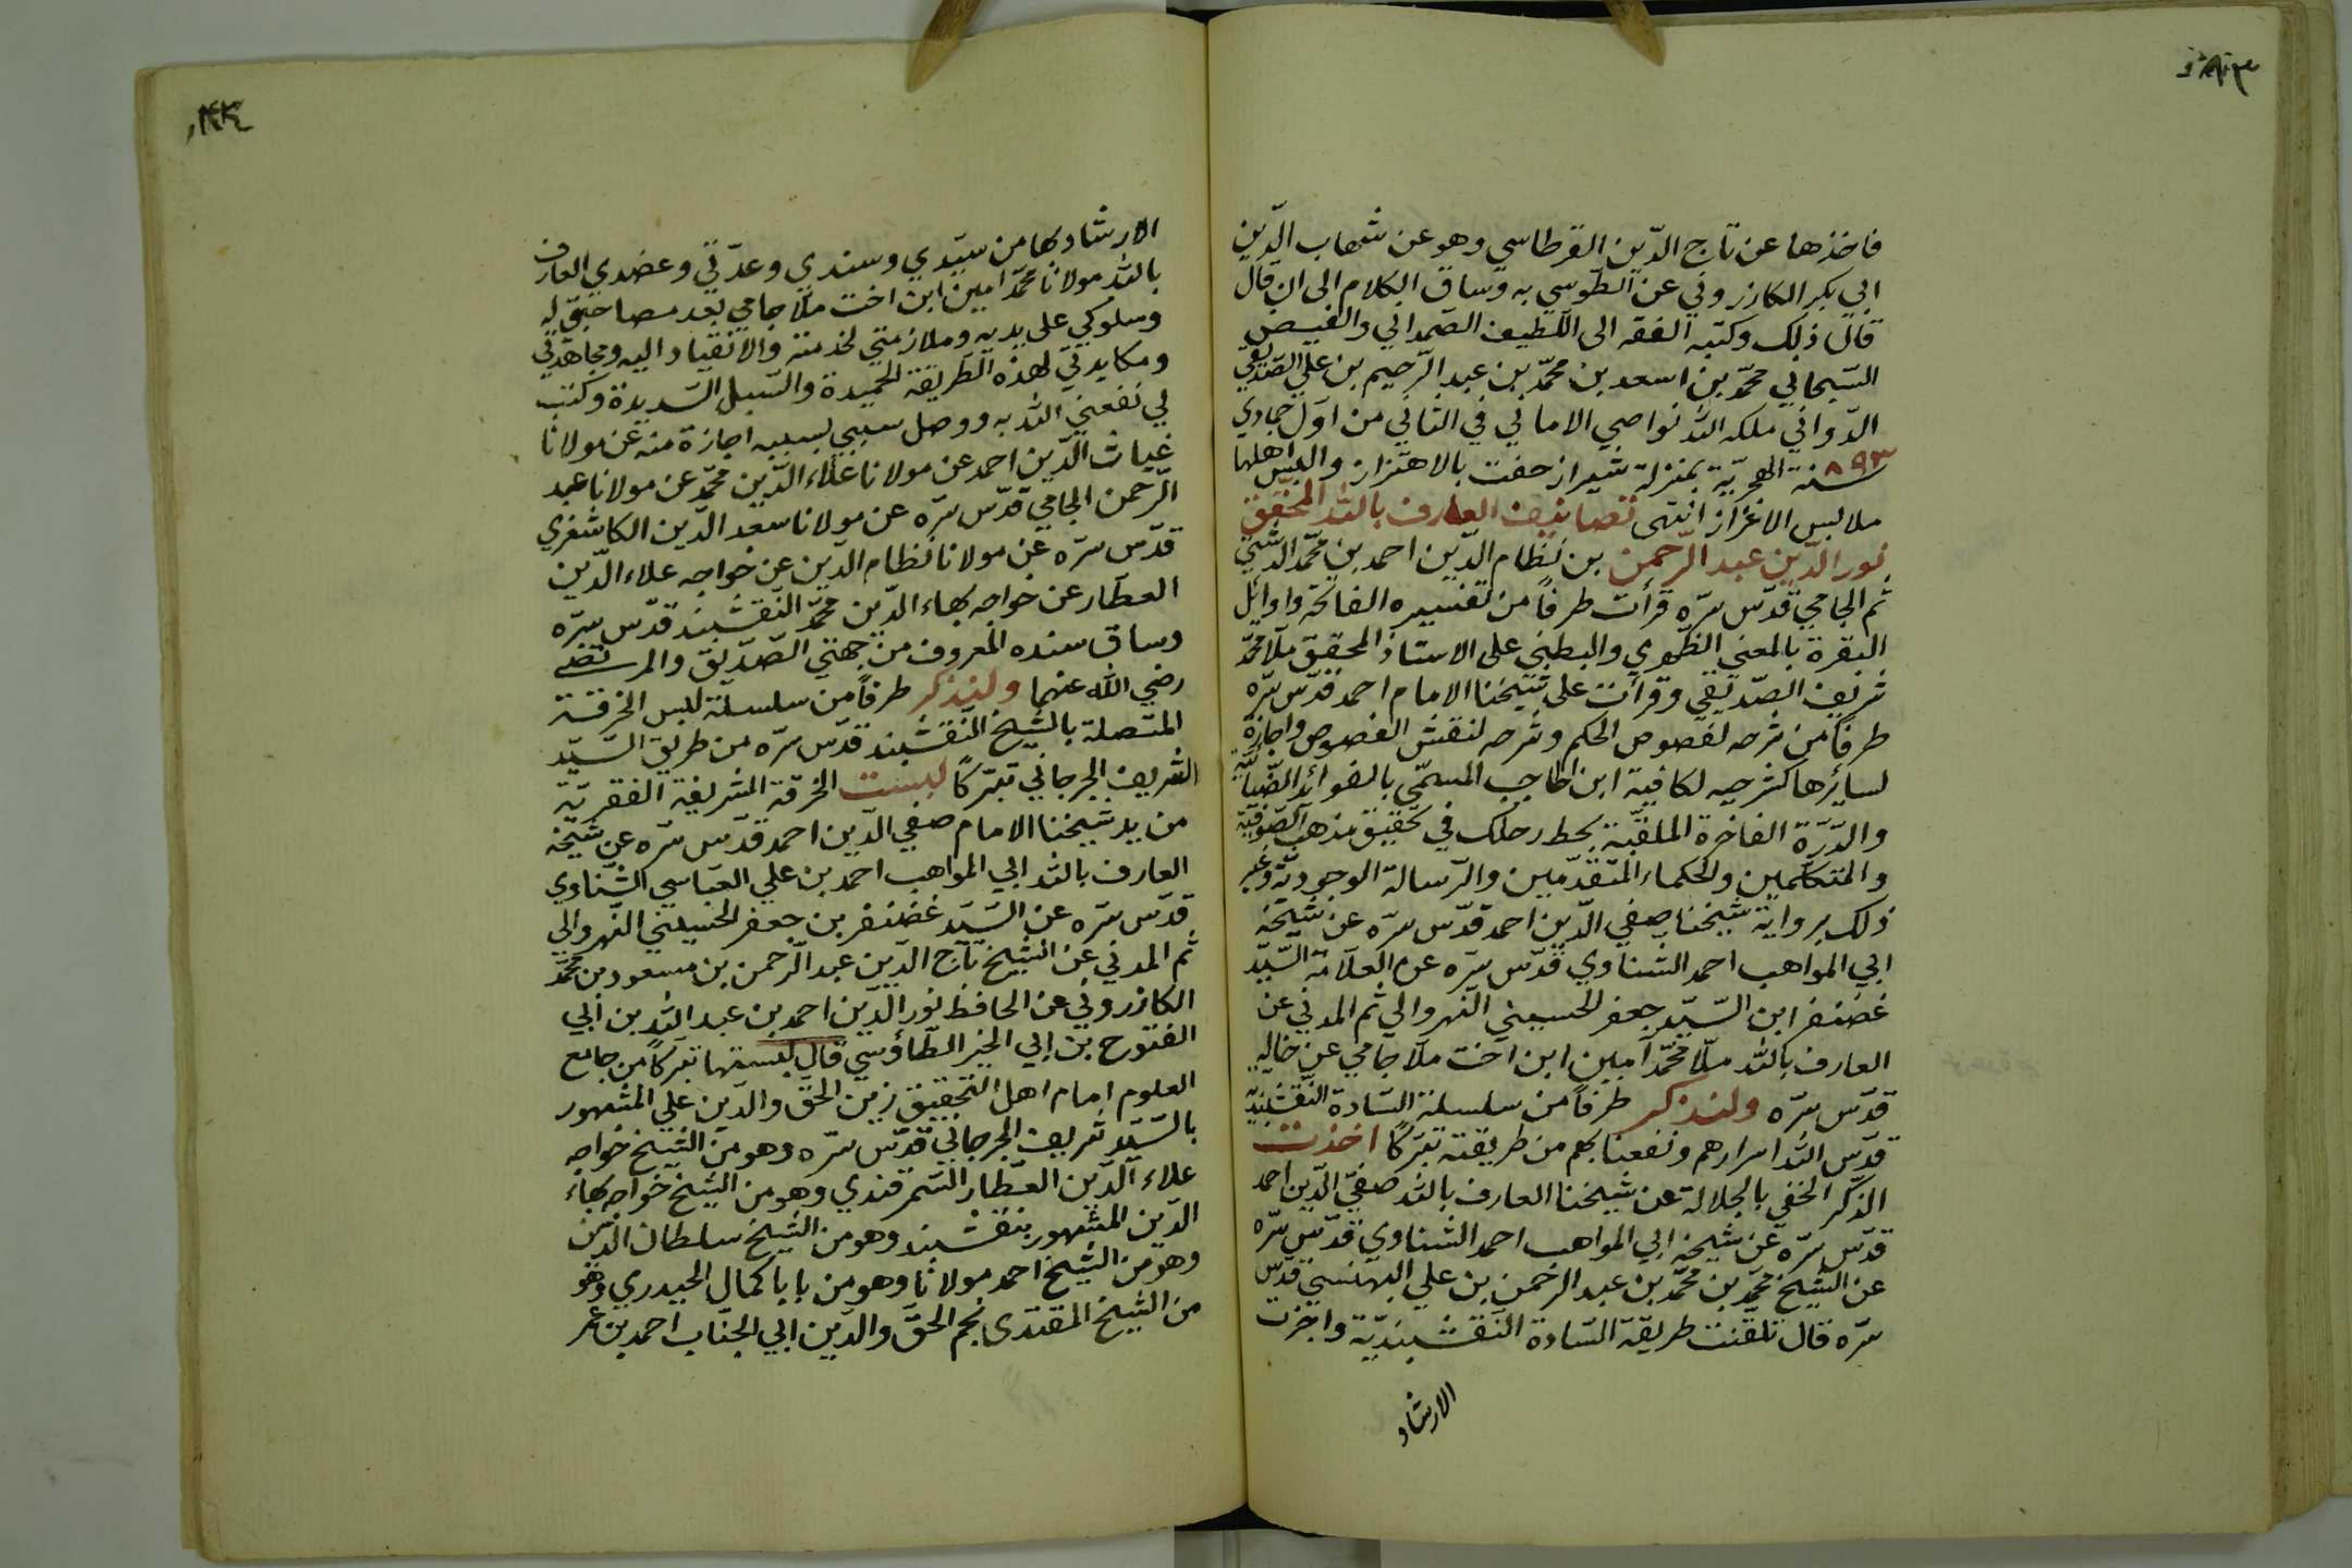 فاخذها عن تاج الدّين القرطاسي وهو عن شهاب الدّين
ابي بكر الكازروني عن الطوسي به وساق الكلام الى ان قال
قال ذلك وكتبه الفقير الى اللطيف الصّمداني والفيض
السّبحاني محمّد بن اسعد بن محمّد بن عبد الرّحيم بن علي الصّديقي
الدّواني ملكه الله نواصي الاماني في الثاني من اوّل جمادي
سنة ٨٩٣ الهجريّة بمنزلة شيراز حفت بالاهتزاز والبس اهلها
ملابس الاعزاز انتهى تصانيف العارف بالله المحقّق
نور الدّين عبد الرّحمن بن نظام الدّين احمد بن محمّد الدشتي
ثم الجامي قدّس سرّه قرأت طرفاً من تفسيره الفاتحة واوائل
البقرة بالمعنى الظهوري والبطني على الاستاذ المحقق ملّا محمّد
شريف الصّديقي وقرأت على شيخنا الامام احمد قدّس سرّه
طرفاً من شرحه لفصوص الحكم وشرحه لنقش الفصوص واجازة
لسائرها كشرحه لكافية ابن الحاجب المسمّى بالفوائد الضّيائيّة
والدّرّة الفاخرة الملقّبة بحط رحلك في تحقيق مذهب الصّوفيّة
والمتكلّمين والحكماء المتقدّمين والرّسالة الوجوديّة وغير
ذلك برواية شيخنا صفي الدّين احمد قدّس سرّه عن شيخه
ابي المواهب احمد الشناوي قدّس سرّه عن العلّامة السّيّد
غضنفر ابن السّيّد جعفر الحسيني النهروالي ثم المدني عن
العارف بالله ملّا محمّد امين ابن اخت ملّا جامي عن خاله
قدّس سرّه ولنذكر طرفاً من سلسلة السّادة النقشبنديّة
قدّس الله اسرارهم ونفعنا بهم من طريقته تبرّكاً اخذت
الذّكر الخفي بالجلالة عن شيخنا العارف بالله صفيّ الدّين احمد
قدّس سرّه عن شيخه ابي المواهب احمد الشناوي قدّس سرّه
عن الشّيخ محمّد بن محمّد بن عبد الرحمن بن علي البهنسي قدّس
سرّه قال تلقنت طريقة السّادة النقشبنديّة واجزت
الارشاد
الارشاد بها من سيّدي وسندي وعدّتي وعضدي العارف
بالله مولانا محمّد امين ابن اخت ملّا جامي بعد مصاحبتي له
وسلوكي على يديه وملازمتي لخدمته والانقياد اليه ومجاهدتي
ومكابدتي لهذه الطريقة الحميدة والسّبل السّديدة وكتب
لي نفعني الله به ووصل سببي بسببه اجازة منه عن مولانا
غياث الدّين احمد عن مولانا علاء الدّين محمّد عن مولانا عبد
الرّحمن الجامي قدّس سرّه عن مولانا سعد الدّين الكاشغري
قدّس سرّه عن مولانا نظام الدّين عن خواجه علاء الدّين
العطّار عن خواجه بهاء الدّين محمّد النقشبند قدّس سرّه
وساق سنده المعروف من جهتي الصّدّيق والمرتضى
رضي الله عنهما ولنذكر طرفاً من سلسلة لبس الخرقة
المتّصلة بالشّيخ النقشبند قدّس سرّه من طريق السّيّد
الشريف الجرجاني تبرّكاً لبست الخرقة الشريفة الفقريّة
من يد شيخنا الامام صفي الدّين احمد قدّس سرّه عن شيخه
العارف بالله ابي المواهب احمد بن علي العبّاسي الشّناوي
قدّس سرّه عن السّيّد غضنفر بن جعفر الحسيني النّهروالي
ثم المدني عن الشّيخ تاج الدّين عبد الرّحمن بن مسعود بن محمّد
الكازروني عن الحافظ نور الدّين احمد بن عبد الله بن ابي
الفتوح بن ابي الخير الطّاؤسي قال لبستها تبرّكاً من جامع
العلوم امام اهل التّحقيق زين الحقّ والدّين علي المشهور
بالسّيّد شريف الجرجاني قدّس سرّه وهو من الشّيخ خواجه
علاء الدّين العطّار السّمرقندي وهو من الشّيخ خواجه بهاء
الدّين المشهور بنقشبند وهو من الشّيخ سلطان الدّين
وهو من الشّيخ احمد مولانا وهو من بابا كمال الجيدري وهو
من الشّيخ المقتدى نجم الحقّ والدّين ابي الجنّاب احمد بن عمر